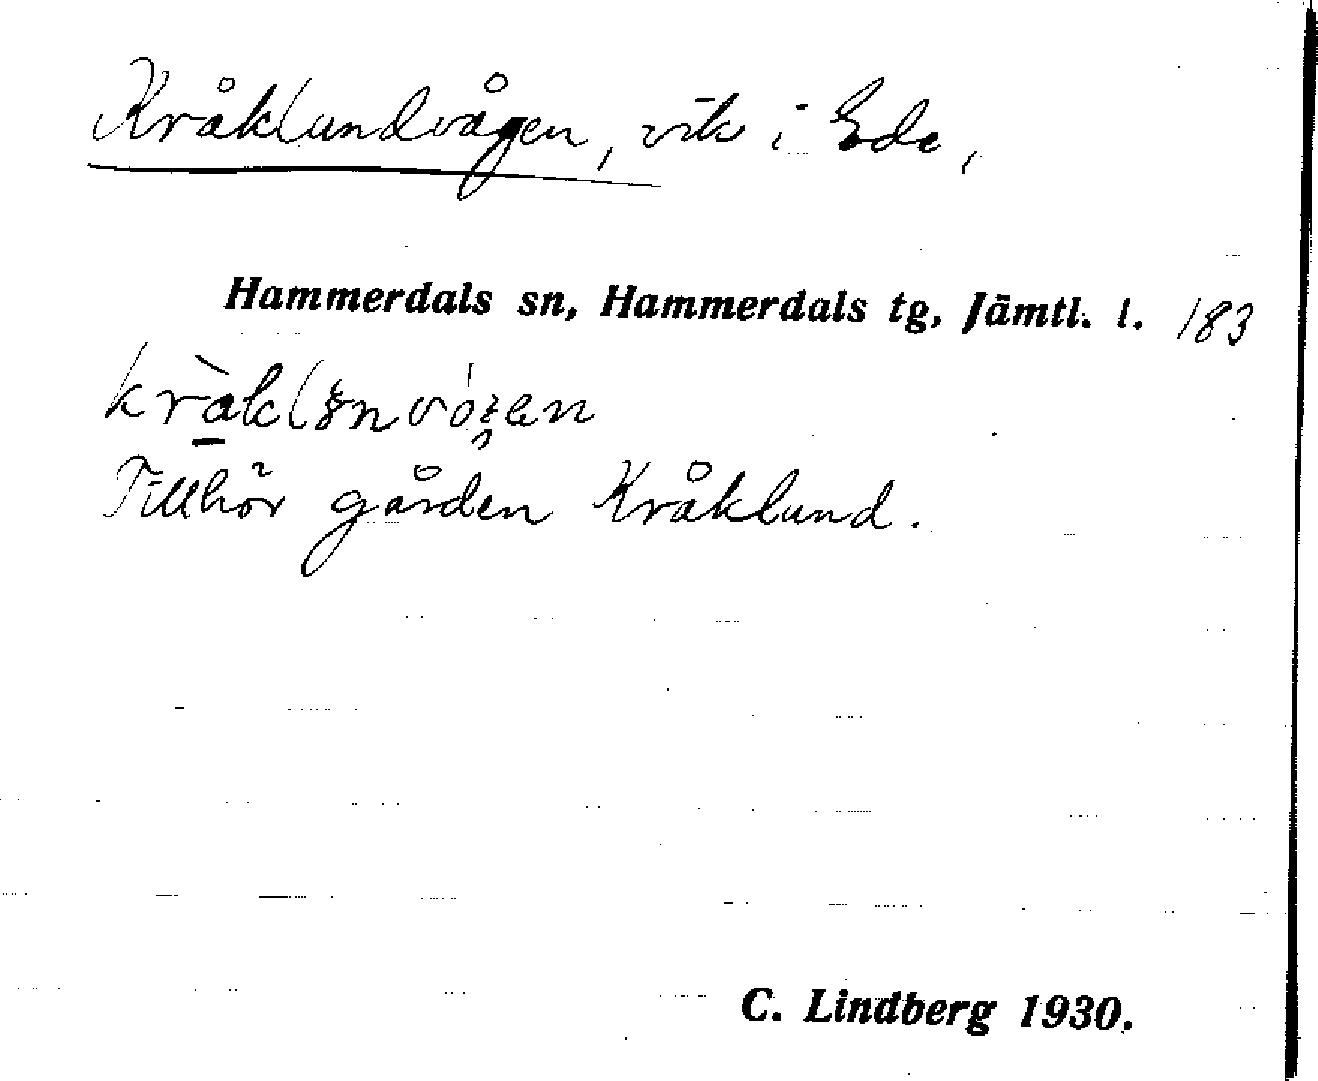 Kråklundvågen, vik i Ede,
Hammerdals sn, Hammerdals tg, Jämtl. l. 183
Tillhör gården Kråklund.
C. Lindberg 1930.